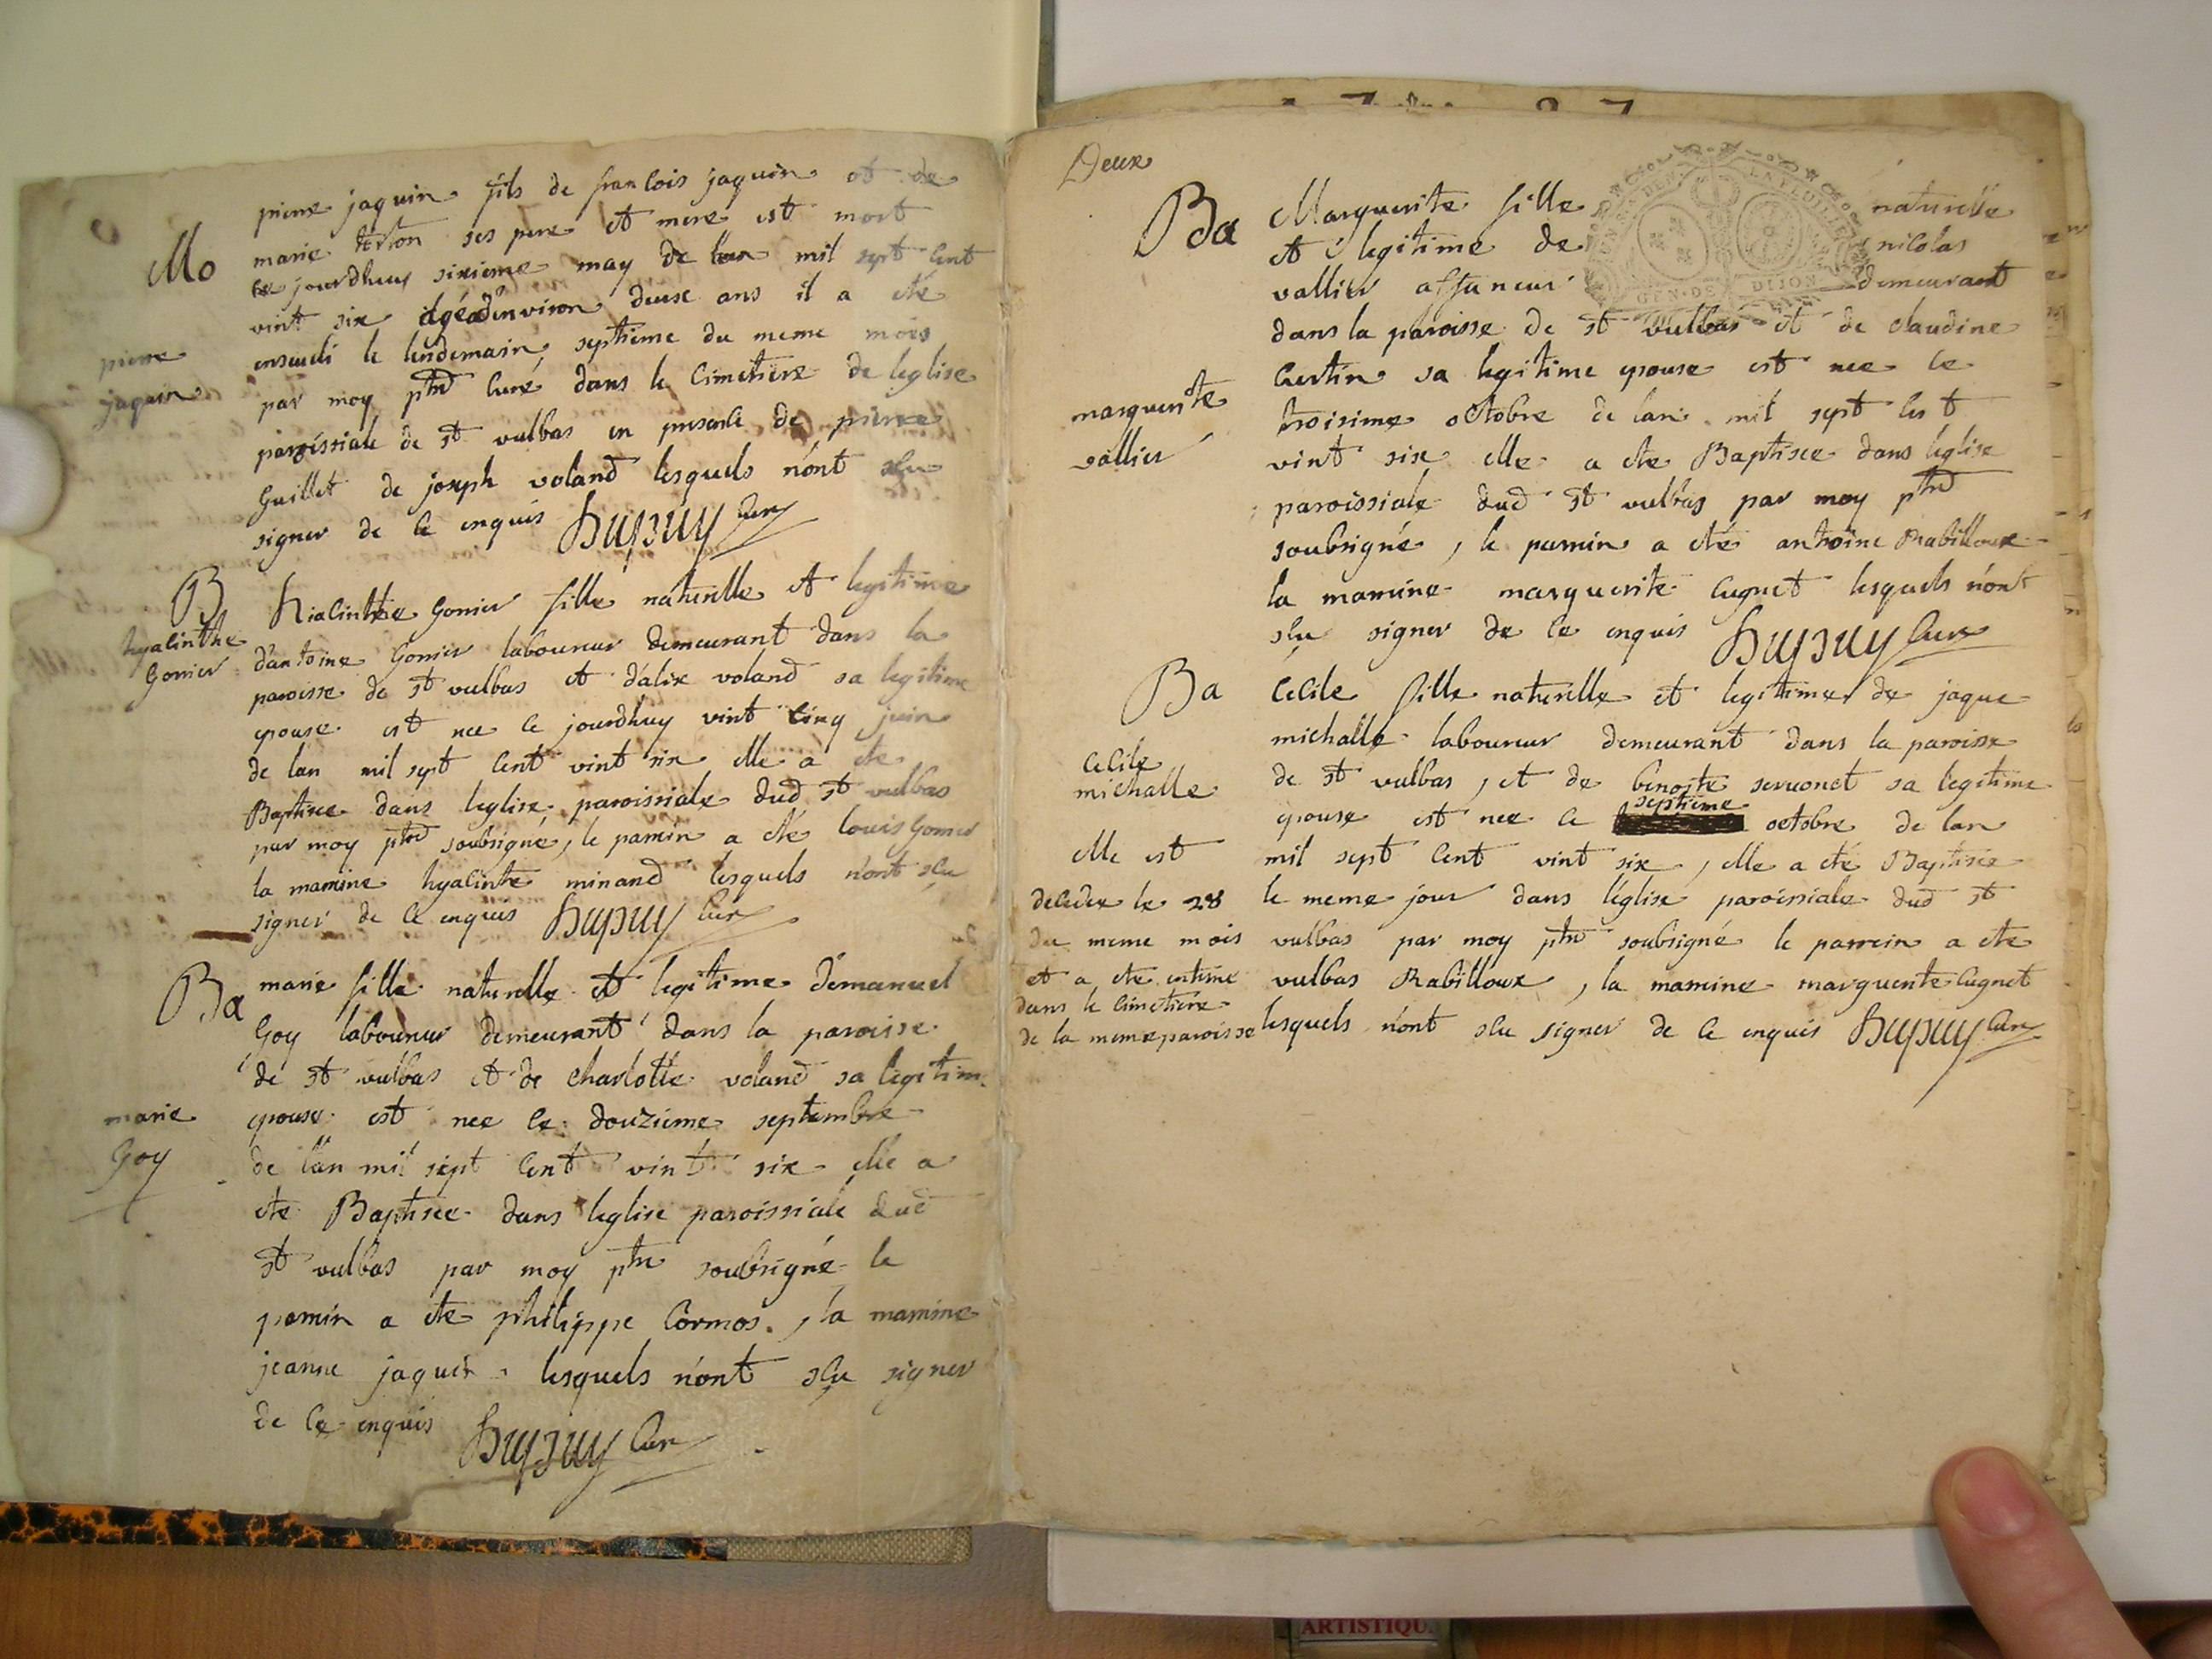 Mo
pierre jaquin
pierre jaquin fils de francois jaquin et de
marie terson ses pere et mere est mort
ce jourdhuy sixieme may de lan mil sept cent
vint six agé d'environ deux ans il a eté
enseveli le lendemain septieme du meme mois
par moy ptre curé dans le cimetiere de leglise
paroissiale de st vulbas en presence de pierre
Guillet de joseph voland lesquels nont sçu
signer de ce enquis Dupuy Curé
B
hyacinthe
Gonier
Hiacinthe Gonier fille naturelle et legitime
d'antoine Gonier laboureur demeurant dans la
paroisse de st vulbas et d'alix voland sa legitime
epouse est nee ce jourdhuy vint cinq juin
de lan mil sept cent vint six elle a ete
Baptisee dans leglise paroissiale dud st vulbas
par moy ptre soubsigné, le parrin a eté louis Gonier
la marrine hyacinte minand lesquels n'ont sçu
signer de ce enquis Dupuy Curé
Ba
marie
Goy
marie fille naturelle et legitime d'emanuel
Goy laboureur demeurant dans la paroisse
de st vulbas et de charlotte voland sa legitime
epouse est nee le douzieme septembre
de l'an mil sept cent vint six elle a
ete Baptisee dans leglise paroissiale dud
st vulbas par moy ptre soubsigné le
parrin a ete philippe Cormos, la marrine
jeanne jaquin lesquels n'ont sçu signer
de ce enquis Dupuy Curé
Deux
GEN. DE DIJON
Ba
marguerite
vallier
Marguerite fille naturelle
et legitime de nicolas
vallier affaneur demeurant
dans la paroisse de st vulbas et de claudine
Certin sa legitime epouse est nee le
troisime octobre de lan mil sept cent
vint six elle a ete Baptisee dans leglise
paroissiale dud st vulbas par moy ptre
soubsigné, le parrin a eté antoine Rabilloux
la marrine marguerite Cugnet lesquels n'ont
sçu signer de ce enquis Dupuy Curé
Ba
Cecile
michalle
elle est
decedee le 28
du meme mois
et a ete enterree
dans le cimetiere
de la meme paroisse
Cecile fille naturelle et legitime de jaque
michalle laboureur demeurant dans la paroisse
de st vulbas, et de benoite servonet sa legitime
epouse est nee le septieme octobre de lan
mil sept cent vint six, elle a eté Baptisée
le meme jour dans l'eglise paroissiale dud st
vulbas par moy ptre soubsigné le parrein a ete
vulbas Rabilloux, la marrine marguerite Cugnet
lesquels n'ont sçu signer de ce enquis Dupuy Curé
ARTISTIQU